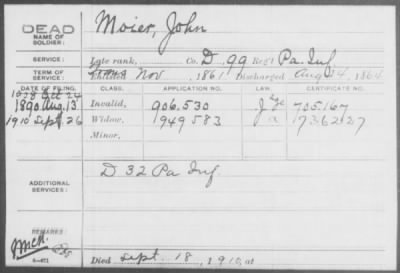 DEAD Moier, John
NAME OF SOLDIER:
SERVICE: Late rank, Co. D, 99 Reg't Pa. Inf
TERM OF SERVICE: Enlisted Nov, 1861 Discharged Aug 14, 1864
DATE OF FILING. CLASS. APPLICATION NO. LAW. CERTIFICATE NO.
1890 Aug. 13 Invalid, 906.530 705.167
1910 Sept. 26 Widow, 949583 a 736227
Minor,
D 32 Pa Inf.
ADDITIONAL SERVICES:
REMARKS:
Died Sept. 18, 1910, at